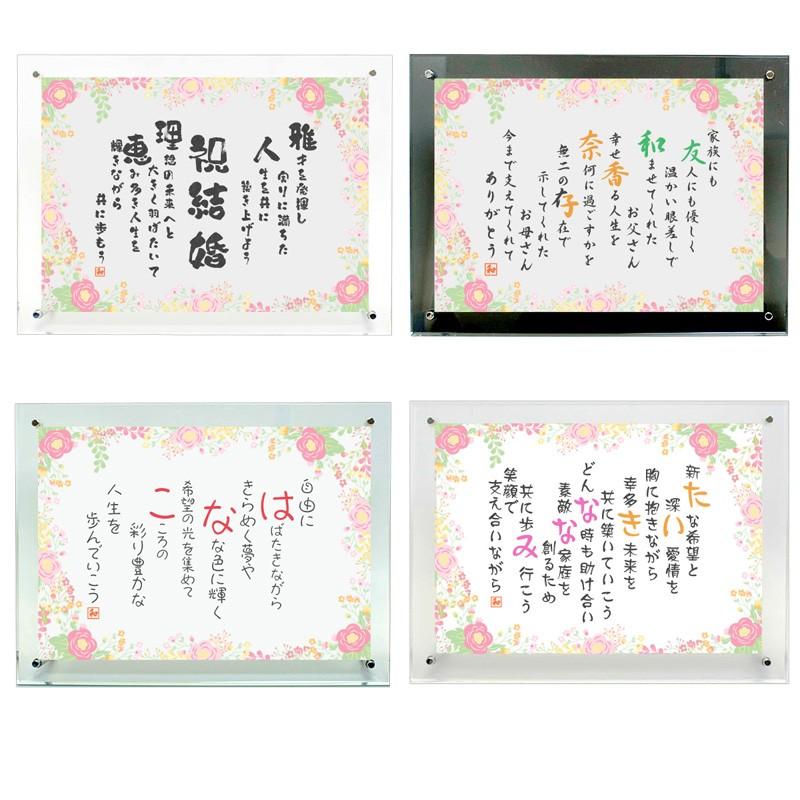 雅才を発揮し
実りに満ちた
人生を共に
築き上げよう
祝結婚
理想の未来へと
大きく羽ばたいて
恵み多き人生を
輝きながら
共に歩もう
和
家族にも
友人にも優しく
温かい眼差しで
和ませてくれた
お父さん
幸せ香る人生を
奈何に過ごすかを
示してくれた
お母さん
無二の存在で
今まで支えてくれて
ありがとう
和
自由に
はばたきながら
きらめく夢や
なな色に輝く
希望の光を集めて
こころの
彩り豊かな
人生を
歩んでいこう
和
新たな希望と
深い愛情を
胸に抱きながら
幸多き未来を
共に築いていこう
どんな時も助け合い
素敵な家庭を
創るため
共に歩み行こう
笑顔で
支え合いながら
和